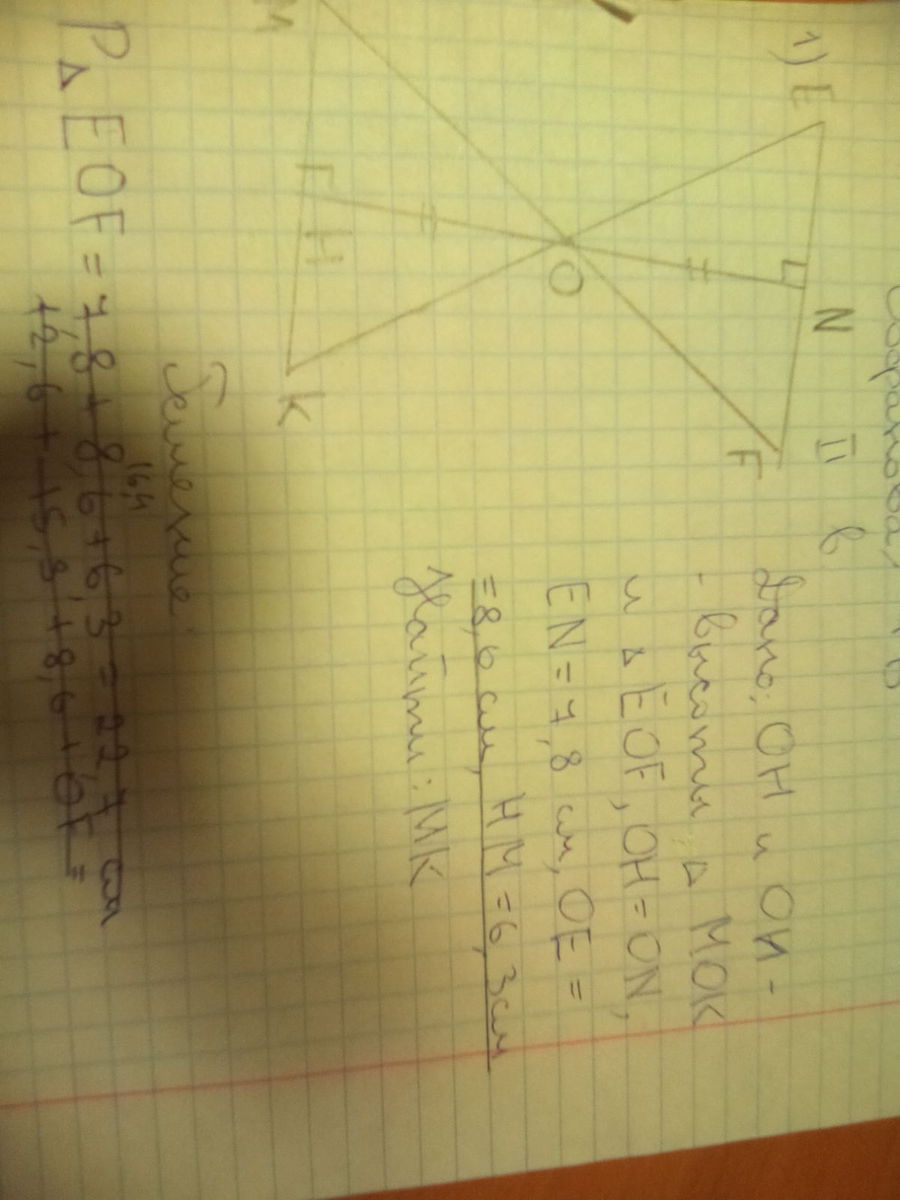 II в
1) E N F
O
M H K
Дано: OH и ON -
- высоты △ MOK
и △ EOF, OH = ON,
EN = 7,8 см, OE =
= 8,6 см, HM = 6,3 см
Найти: MK
Решение:
P△ EOF = 7,8 + 8,6 + 6,3 = 22,7 см
16,4
+2,6 + 15,8 + 8,6 + OF =